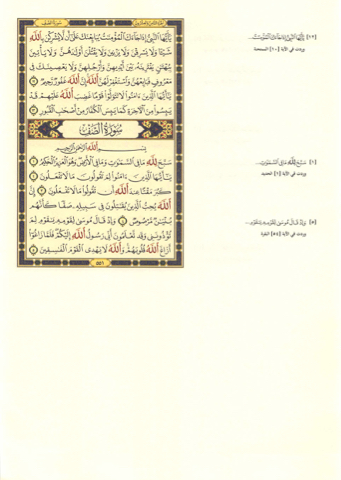 يَٰٓأَيُّهَا ٱلنَّبِىُّ إِذَا جَآءَكَ ٱلْمُؤْمِنَٰتُ يُبَايِعْنَكَ عَلَىٰٓ أَن لَّا يُشْرِكْنَ بِٱللَّهِ
شَيْـًٔا وَلَا يَسْرِقْنَ وَلَا يَزْنِينَ وَلَا يَقْتُلْنَ أَوْلَٰدَهُنَّ وَلَا يَأْتِينَ
بِبُهْتَٰنٍ يَفْتَرِينَهُۥ بَيْنَ أَيْدِيهِنَّ وَأَرْجُلِهِنَّ وَلَا يَعْصِينَكَ فِى
مَعْرُوفٍ فَبَايِعْهُنَّ وَٱسْتَغْفِرْ لَهُنَّ ٱللَّهَ إِنَّ ٱللَّهَ غَفُورٌ رَّحِيمٌ ١٢
يَٰٓأَيُّهَا ٱلَّذِينَ ءَامَنُوا۟ لَا تَتَوَلَّوْا۟ قَوْمًا غَضِبَ ٱللَّهُ عَلَيْهِمْ قَدْ
يَئِسُوا۟ مِنَ ٱلْءَاخِرَةِ كَمَا يَئِسَ ٱلْكُفَّارُ مِنْ أَصْحَٰبِ ٱلْقُبُورِ ١٣
سُورَةُ ٱلصَّفِّ
بِسْمِ ٱللَّهِ ٱلرَّحْمَٰنِ ٱلرَّحِيمِ
سَبَّحَ لِلَّهِ مَا فِى ٱلسَّمَٰوَٰتِ وَمَا فِى ٱلْأَرْضِ وَهُوَ ٱلْعَزِيزُ ٱلْحَكِيمُ ١
يَٰٓأَيُّهَا ٱلَّذِينَ ءَامَنُوا۟ لِمَ تَقُولُونَ مَا لَا تَفْعَلُونَ ٢
كَبُرَ مَقْتًا عِندَ ٱللَّهِ أَن تَقُولُوا۟ مَا لَا تَفْعَلُونَ ٣ إِنَّ
ٱللَّهَ يُحِبُّ ٱلَّذِينَ يُقَٰتِلُونَ فِى سَبِيلِهِۦ صَفًّا كَأَنَّهُم
بُنْيَٰنٌ مَّرْصُوصٌ ٤ وَإِذْ قَالَ مُوسَىٰ لِقَوْمِهِۦ يَٰقَوْمِ لِمَ
تُؤْذُونَنِى وَقَد تَّعْلَمُونَ أَنِّى رَسُولُ ٱللَّهِ إِلَيْكُمْ فَلَمَّا زَاغُوٓا۟
أَزَاغَ ٱللَّهُ قُلُوبَهُمْ وَٱللَّهُ لَا يَهْدِى ٱلْقَوْمَ ٱلْفَٰسِقِينَ ٥
٥٥١
[١٢] يَٰٓأَيُّهَا ٱلنَّبِىُّ إِذَا جَآءَكَ ٱلْمُؤْمِنَٰتُ...
وردت في الآية [١٠] الممتحنة
[١] سَبَّحَ لِلَّهِ مَا فِى ٱلسَّمَٰوَٰتِ...
وردت في الآية [١] الحديد
[٥] وَإِذْ قَالَ مُوسَىٰ لِقَوْمِهِۦ يَٰقَوْمِ...
وردت في الآية [٥٤] البقرة